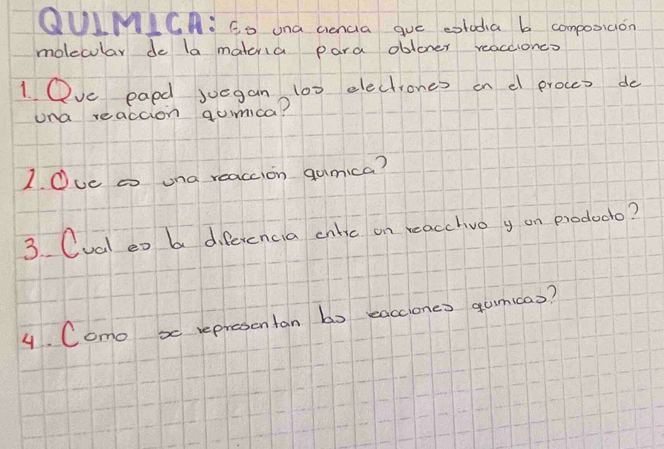 QUIMICA: Es una ciencia que estudia la composición
molecular de la materia para obtener reacciones
1. Que papel juegan los electrones en el proces de
una reacción quimica?
2. Que es una reacción quimica?
3. Cual es la diferencia entre un reacctivo y un producto?
4. Como se representan las eacciones quimicas?